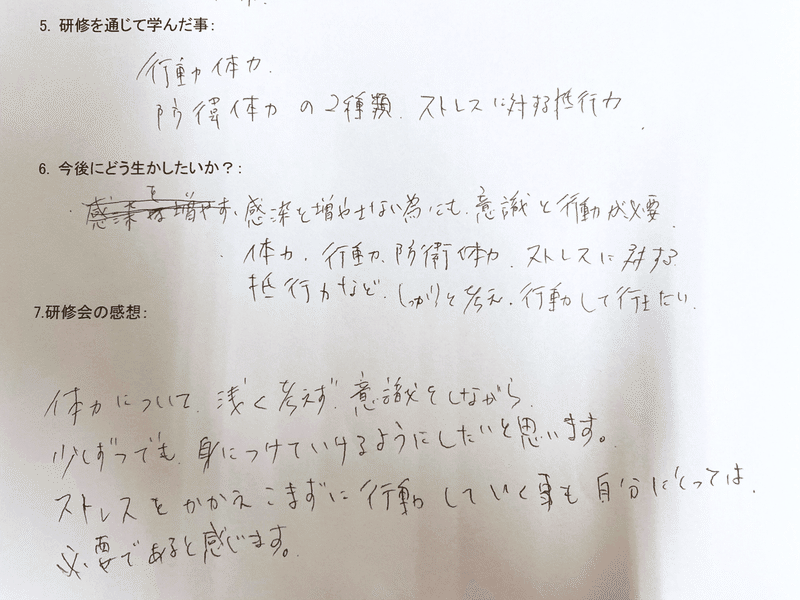 5. 研修を通じて学んだ事：
行動体力.
防衛体力 の2種類. ストレスに対する抵行力.
6. 今後にどう生かしたいか？：
・感染を増やす、感染を増やせない為にも、意識と行動が必要.
・体力、行動、防衛体力、ストレスに対する
抵行力など、しっかりと考え、行動して行きたい.
7.研修会の感想：
体力について、浅く考えず、意識をしながら、
少しずつでも、身につけていけるようにしたいと思います。
ストレスをかかえこまずに行動していく事も自分にとっては、
必要であると感じます。